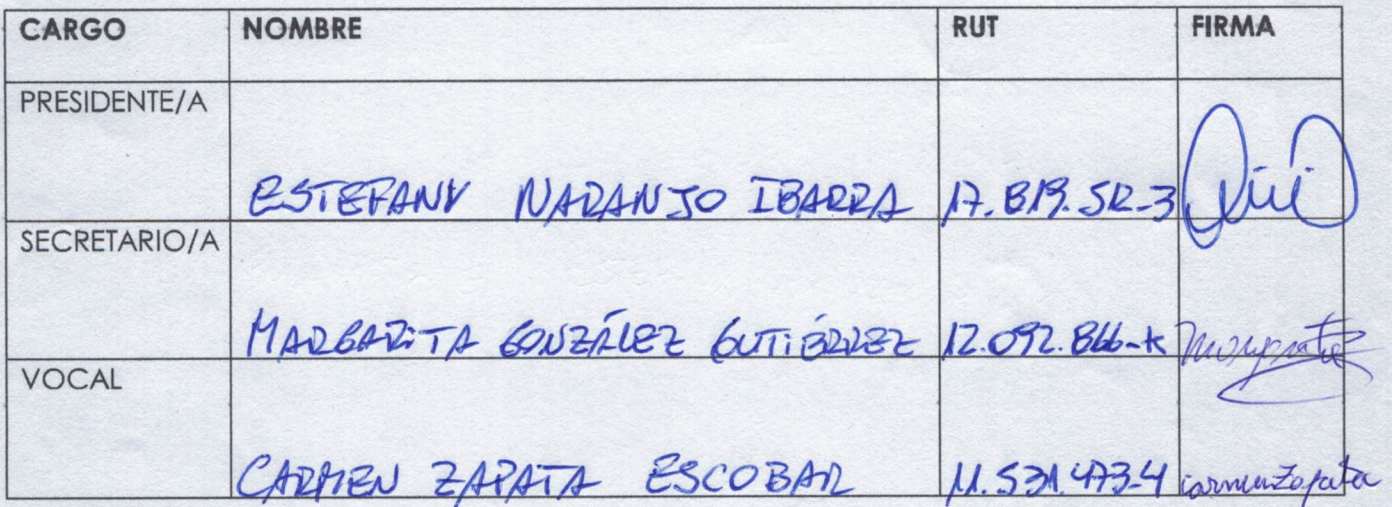 CARGO NOMBRE RUT FIRMA
PRESIDENTE/A
ESTEFANY NARANJO IBARRA
SECRETARIO/A
MARGARITA GONZÁLEZ GUTIÉRREZ 12.092.866-K Margarita
VOCAL
CARMEN ZAPATA ESCOBAR 11.531.473-4 Carmen Zapata